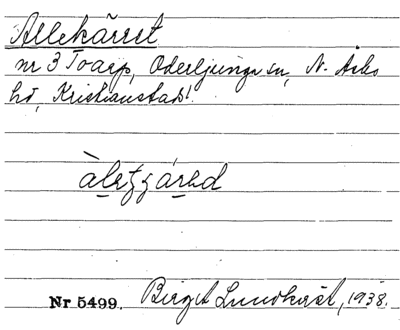 Allekärret
nr 3 Toarp, Oderljunga sn, N. Åsbo
hd, Kristianstads l.
Nr 5499. Birgit Lundkvist, 1938.